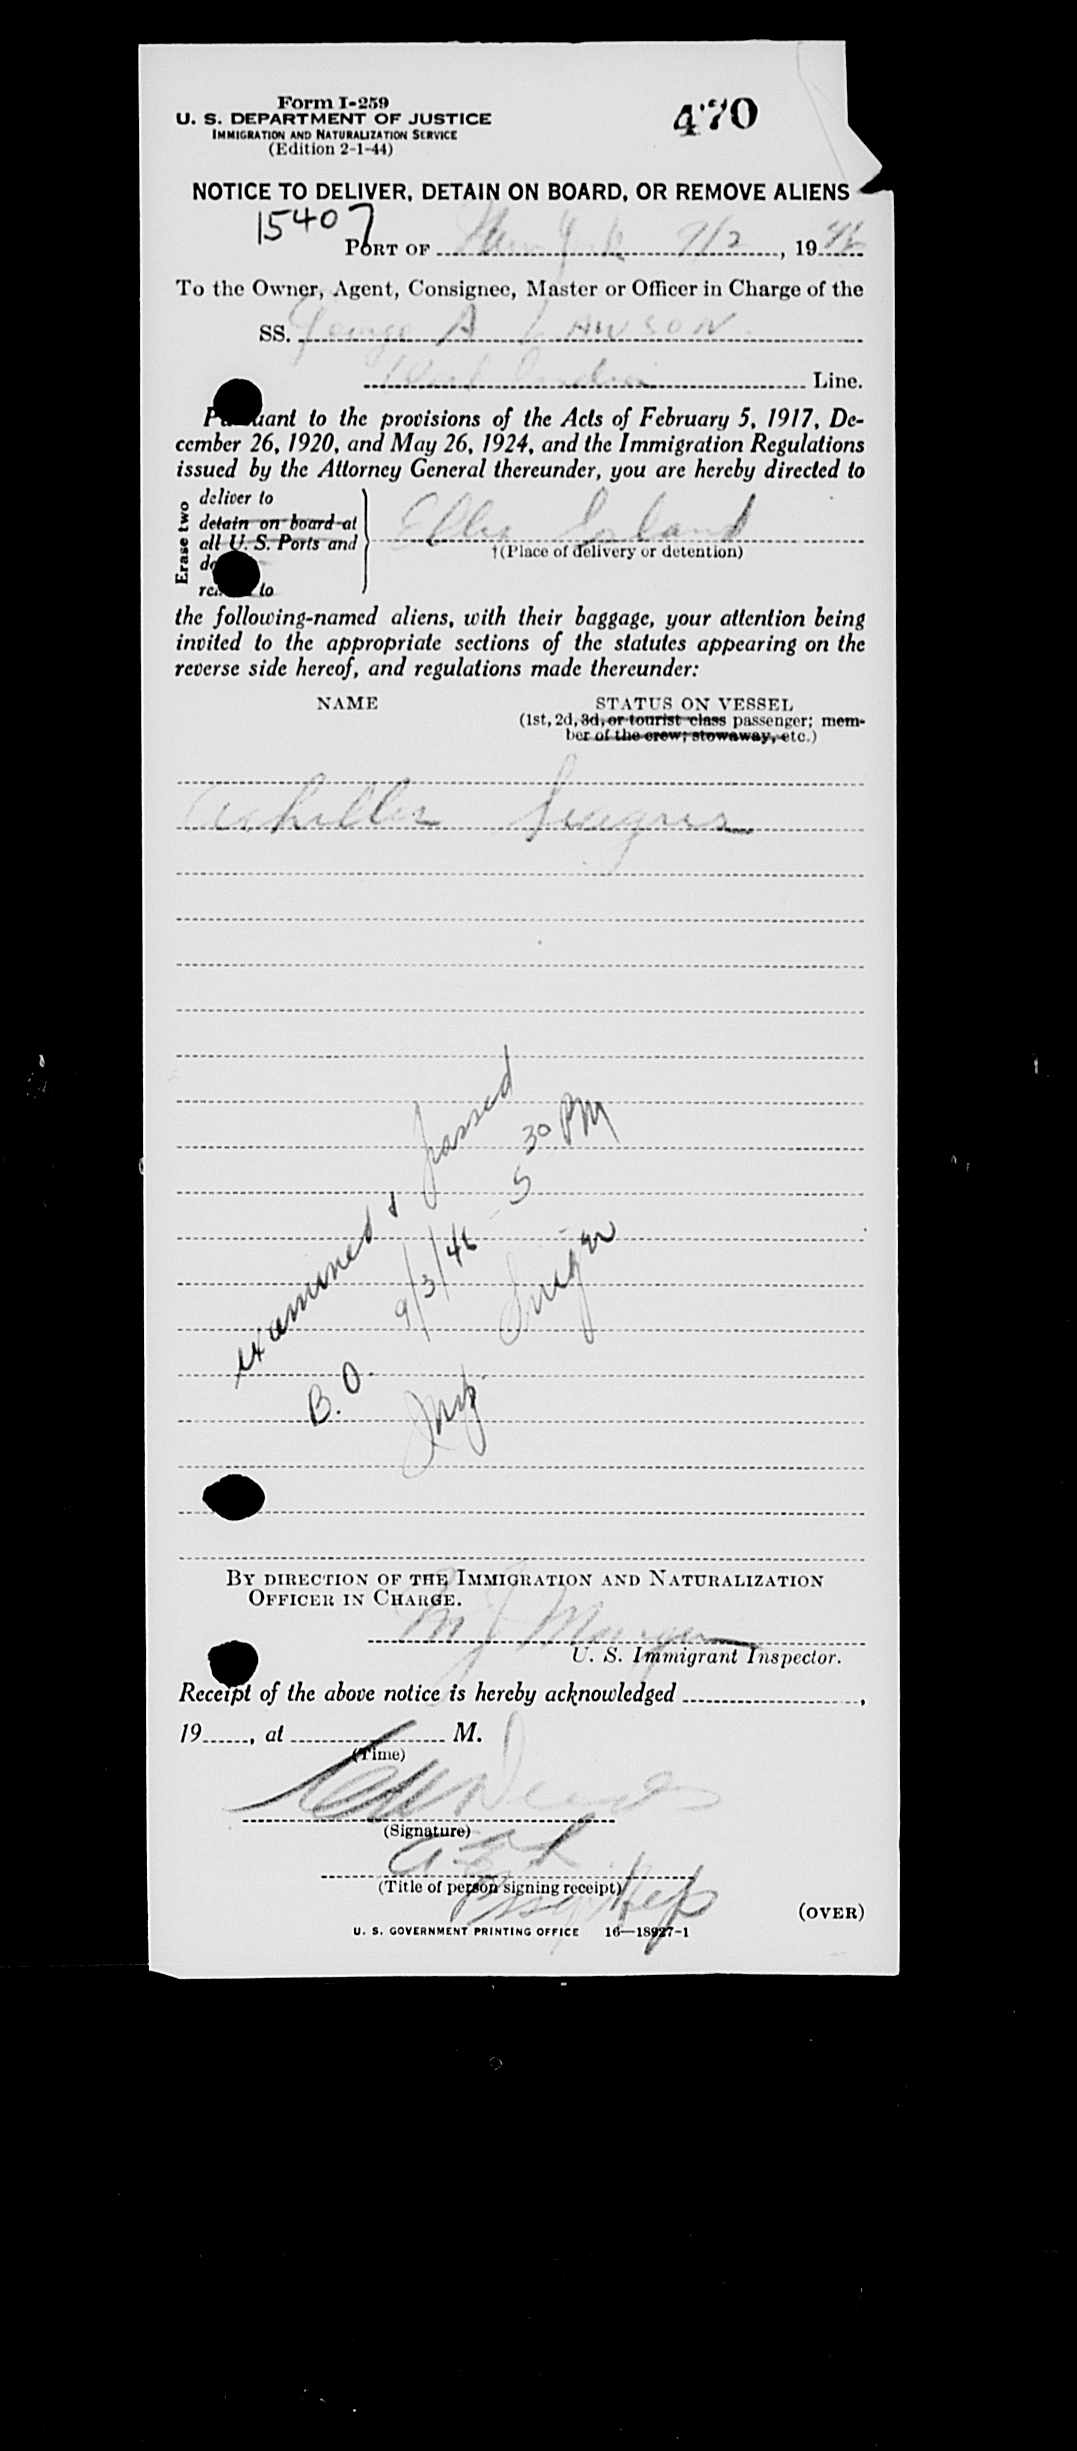 Form I-259
U. S. DEPARTMENT OF JUSTICE
IMMIGRATION AND NATURALIZATION SERVICE
(Edition 2-1-44)
470
NOTICE TO DELIVER, DETAIN ON BOARD, OR REMOVE ALIENS
15407
PORT OF New York 9/2, 19 46
To the Owner, Agent, Consignee, Master or Officer in Charge of the
SS. George A LAWSON
West India Line.
Pursuant to the provisions of the Acts of February 5, 1917, De-
cember 26, 1920, and May 26, 1924, and the Immigration Regulations
issued by the Attorney General thereunder, you are hereby directed to
Erase two
deliver to
detain on board at
all U. S. Ports and
to
Ellis Island
†(Place of delivery or detention)
the following-named aliens, with their baggage, your attention being
invited to the appropriate sections of the statutes appearing on the
reverse side hereof, and regulations made thereunder:
NAME
STATUS ON VESSEL
(1st, 2d, 3d, or tourist class passenger; mem-
ber of the crew; stowaway, etc.)
Achilles
examined & passed
9/3/46 5 30 PM
B.O.
BY DIRECTION OF THE IMMIGRATION AND NATURALIZATION
OFFICER IN CHARGE.
M J
U. S. Immigrant Inspector.
Receipt of the above notice is hereby acknowledged ,
19 , at M.
(Time)
(Signature)
(Title of person signing receipt)
(OVER)
U. S. GOVERNMENT PRINTING OFFICE 16—18927-1